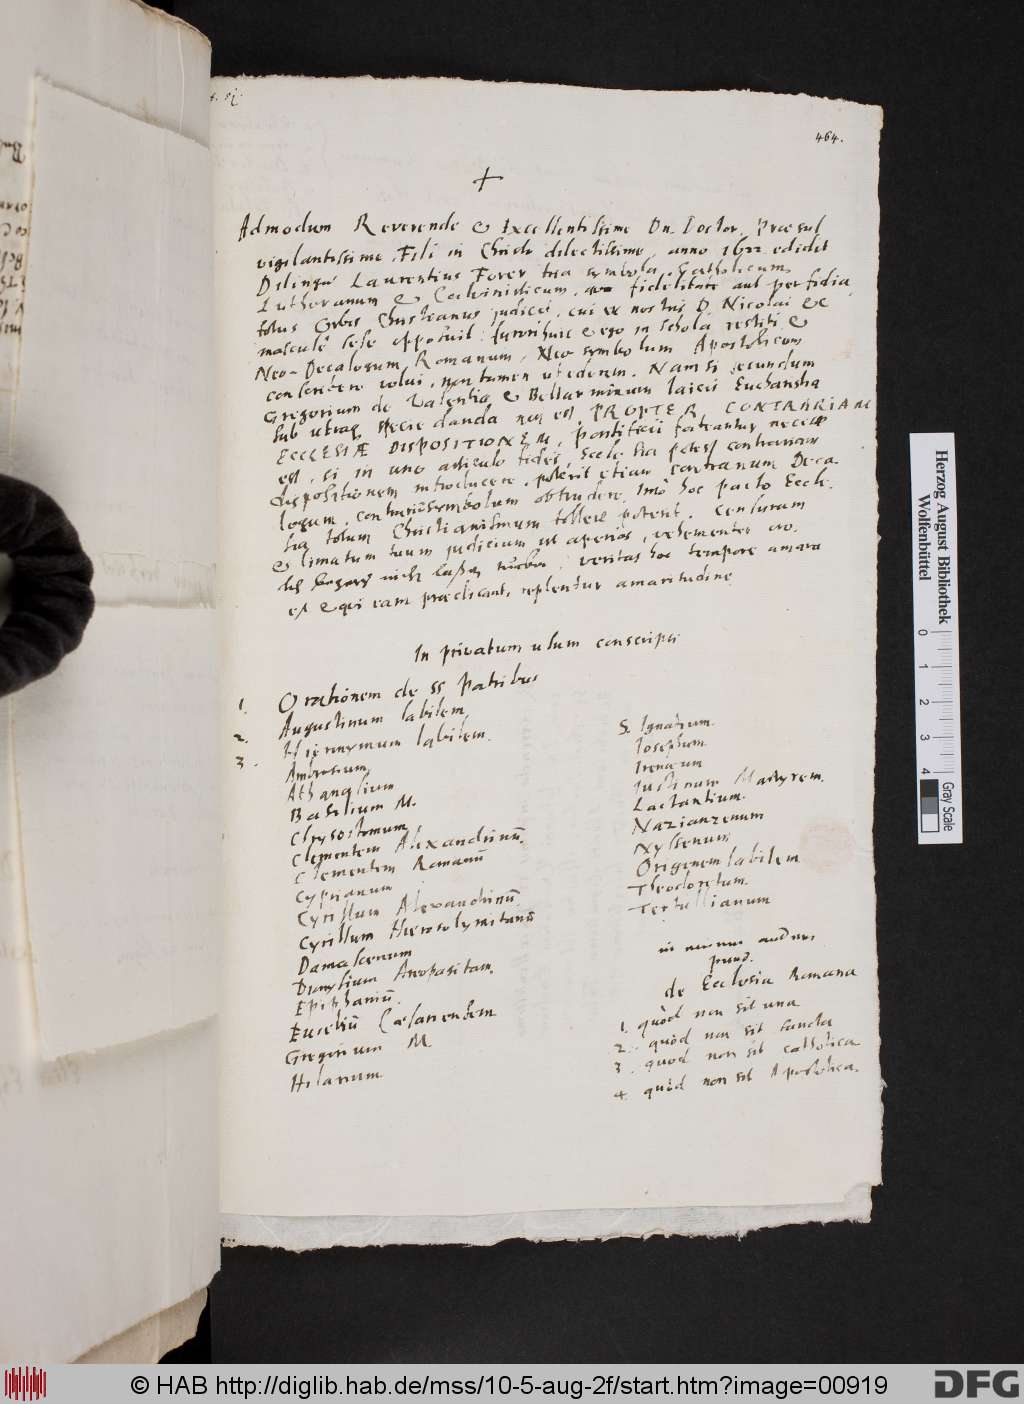 464.
+
Admodum Reverende & Excellentissime Dn. Doctor, Præsul
vigilantissime, Fili in Christo dilectissime, anno 1622 edidit
Dilingæ Laurentius Forer tria symbola, Catholicum
Lutheranum & Calvinisticum, fidelitate aut perfidia
totus Orbis Christianus judicet, cui ex nostris D. Nicolai &c
masculè sese opposuit: & ego in schola restiti, &
Neo-Decalogum Romanum, Neo symbolum Apostolicum
conscribere volui, non tamen ut ederem. Nam si secundum
Gregorium de Valentia & Bellarminum laicis Eucharistia
sub utraq specie danda non est, PROPTER CONTRARIAM
ECCLESIÆ DISPOSITIONEM, pontificii fateantur necesse
est, si in uno articulo fidei, Ecclesia potest contrariam
dispositionem introducere, poterit etiam contrarium Deca-
logum, contrariū symbolum obtrudere. Imò hoc pacto Eccle-
sia totum Christianismum tollere poterit. Censuram
& limatum tuum judicium ut aperias, vehementer oro.
veritas hoc tempore amara
est & qui eam prædicant, replentur amaritudine.
In privatum usum conscripsi
1. Orationem de SS Patribus
2. Augustinum labilem
3. Hieronymum labilem.
Ambrosium
Athanasium
Basilium M.
Chrysostomum
Clementem Alexandrinū.
Clementem Romanū
Cyprianum
Cyrillum Alexandrinū
Cyrillum Hierosolymitanū
Damascenum
Dionysium Areopagitam.
Epiphaniū.
Eusebiū Cæsariensem
Gregorium M.
Hilarium
S. Ignatium.
Josephum.
Irenæum
Justinum Martyrem.
Lactantium.
Nazianzenum
Nyssenum
Origenem labilem
Theodoretum.
Tertullianum
de Ecclesia Romana
1. quòd non sit una
2. quòd non sit sancta
3. quod non sit catholica
4. quòd non sit Apostolica.
Herzog August Bibliothek
Wolfenbüttel
0 1 2 3 4
Gray Scale
© HAB http://diglib.hab.de/mss/10-5-aug-2f/start.htm?image=00919
DFG